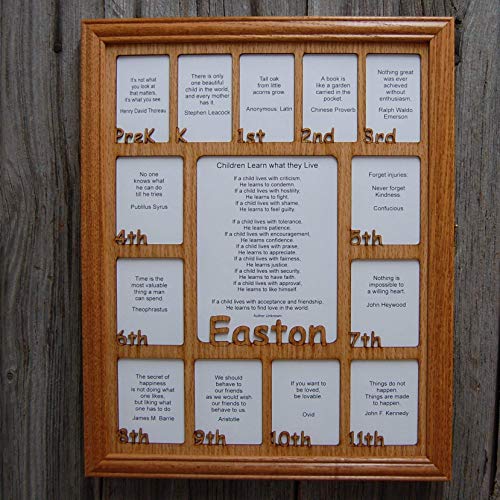 It's not what
you look at
that matters,
it's what you see.
Henry David Thoreau
PreK
There is only
one beautiful
child in the world,
and every mother
has it.
Stephen Leacock
K
Tall oak
from little
acorns grow.
Anonymous: Latin
1st
A book is
like a garden
carried in the
pocket.
Chinese Proverb
2nd
Nothing great
was ever
achieved
without
enthusiasm.
Ralph Waldo
Emerson
3rd
No one
knows what
he can do
till he tries.
Publilius Syrus
4th
Children Learn what they Live
If a child lives with criticism,
He learns to condemn.
If a child lives with hostility,
He learns to fight.
If a child lives with shame,
He learns to feel guilty.
If a child lives with tolerance,
He learns patience.
If a child lives with encouragement,
He learns confidence.
If a child lives with praise,
He learns to appreciate.
If a child lives with fairness,
He learns justice.
If a child lives with security,
He learns to have faith.
If a child lives with approval,
He learns to like himself.
If a child lives with acceptance and friendship,
He learns to find love in the world.
Author Unknown
Easton
Forget injuries.
Never forget
Kindness.
Confucious
5th
Time is the
most valuable
thing a man
can spend.
Theophrastus
6th
Nothing is
impossible to
a willing heart.
John Heywood
7th
The secret of
happiness
is not doing
what one likes,
but liking what
one has to do
James M. Barrie
8th
We should
behave to
our friends
as we would wish
our friends to
behave to us.
Aristotle
9th
If you want to
be loved,
be lovable.
Ovid
10th
Things do not
happen.
Things are made
to happen.
John F. Kennedy
11th